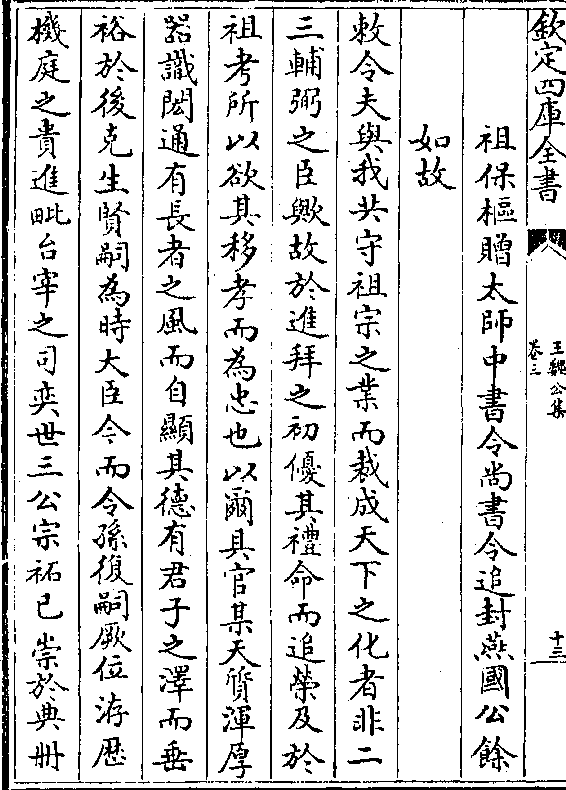 欽定四庫全書
王魏公集
卷三
十三
祖保樞贈太師中書令尚書令追封燕國公餘
如故
敕令夫與我共守祖宗之業而裁成天下之化者非二
三輔弼之臣歟故於進拜之初優其禮命而追榮及於
祖考所以欲其移孝而為忠也以爾具官某天質渾厚
器識閎通有長者之風而自顯其德有君子之澤而垂
裕於後克生賢嗣為時大臣今而令孫復嗣厥位洊歴
機庭之貴進毗台宰之司奕世三公宗祏已崇於典冊